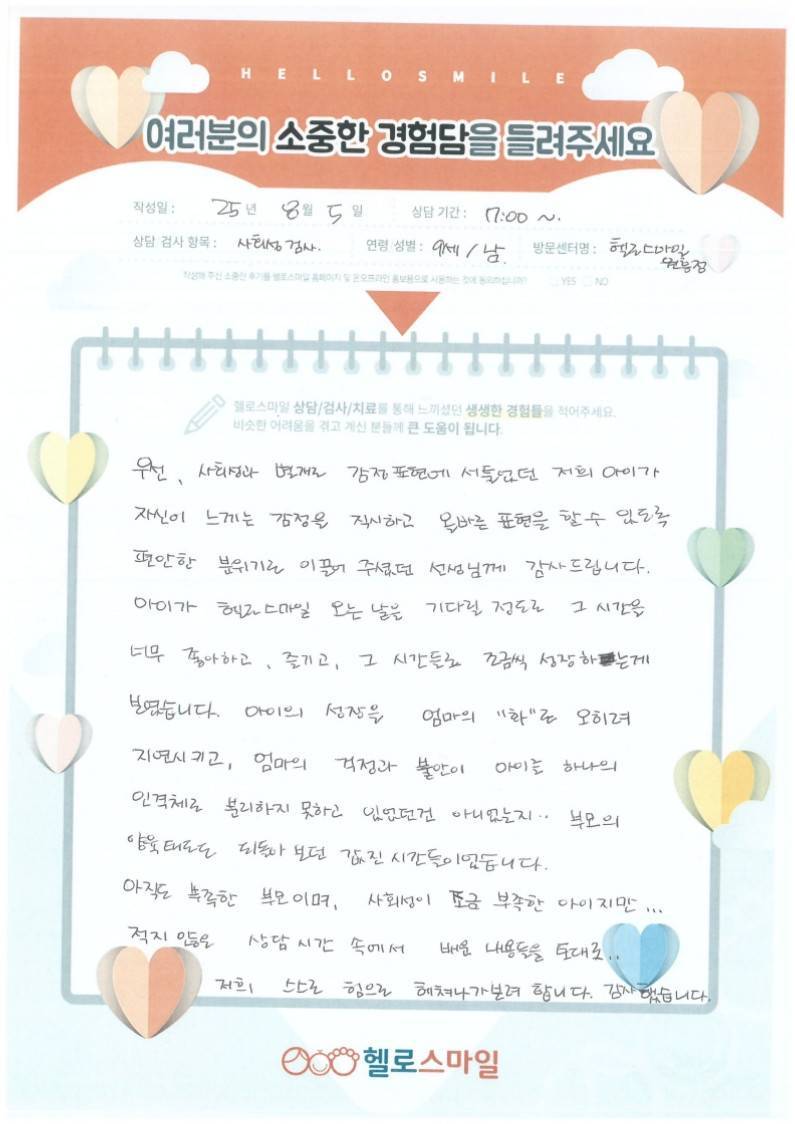 HELLOSMILE
여러분의 소중한 경험담을 들려주세요
작성일 : 25 년 8 월 5 일 상담 기간 : 17:00 ~.
상담 검사 항목 : 사회성 검사. 연령 성별 : 9세 / 남. 방문센터명 : 헬로스마일
작성해 주신 소중한 후기를 헬로스마일 홈페이지 및 온오프라인 홍보용으로 사용하는 것에 동의하십니까? YES NO
헬로스마일 상담/검사/치료를 통해 느끼셨던 생생한 경험들을 적어주세요.
비슷한 어려움을 겪고 계신 분들께 큰 도움이 됩니다.
우선, 사회성과 별개로 감정표현에 서툴었던 저희 아이가
자신이 느끼는 감정을 직시하고 올바른 표현을 할 수 있도록
편안한 분위기로 이끌어 주셨던 선생님께 감사드립니다.
아이가 헬로스마일 오는 날을 기다릴 정도로 그 시간을
너무 좋아하고, 즐기고, 그 시간들로 조금씩 성장하는게
보였습니다. 아이의 성장을 엄마의 "화"로 오히려
지연시키고, 엄마의 걱정과 불안이 아이를 하나의
인격체로 분리하지 못하고 있었던건 아니었는지.. 부모의
양육태도도 되돌아 보던 값진 시간들이었습니다.
아직도 부족한 부모이며, 사회성이 조금 부족한 아이지만...
적지 않은 상담 시간 속에서 배운 내용들을 토대로..
저희, 스스로 힘으로 헤쳐나가보려 합니다. 감사했습니다.
헬로스마일